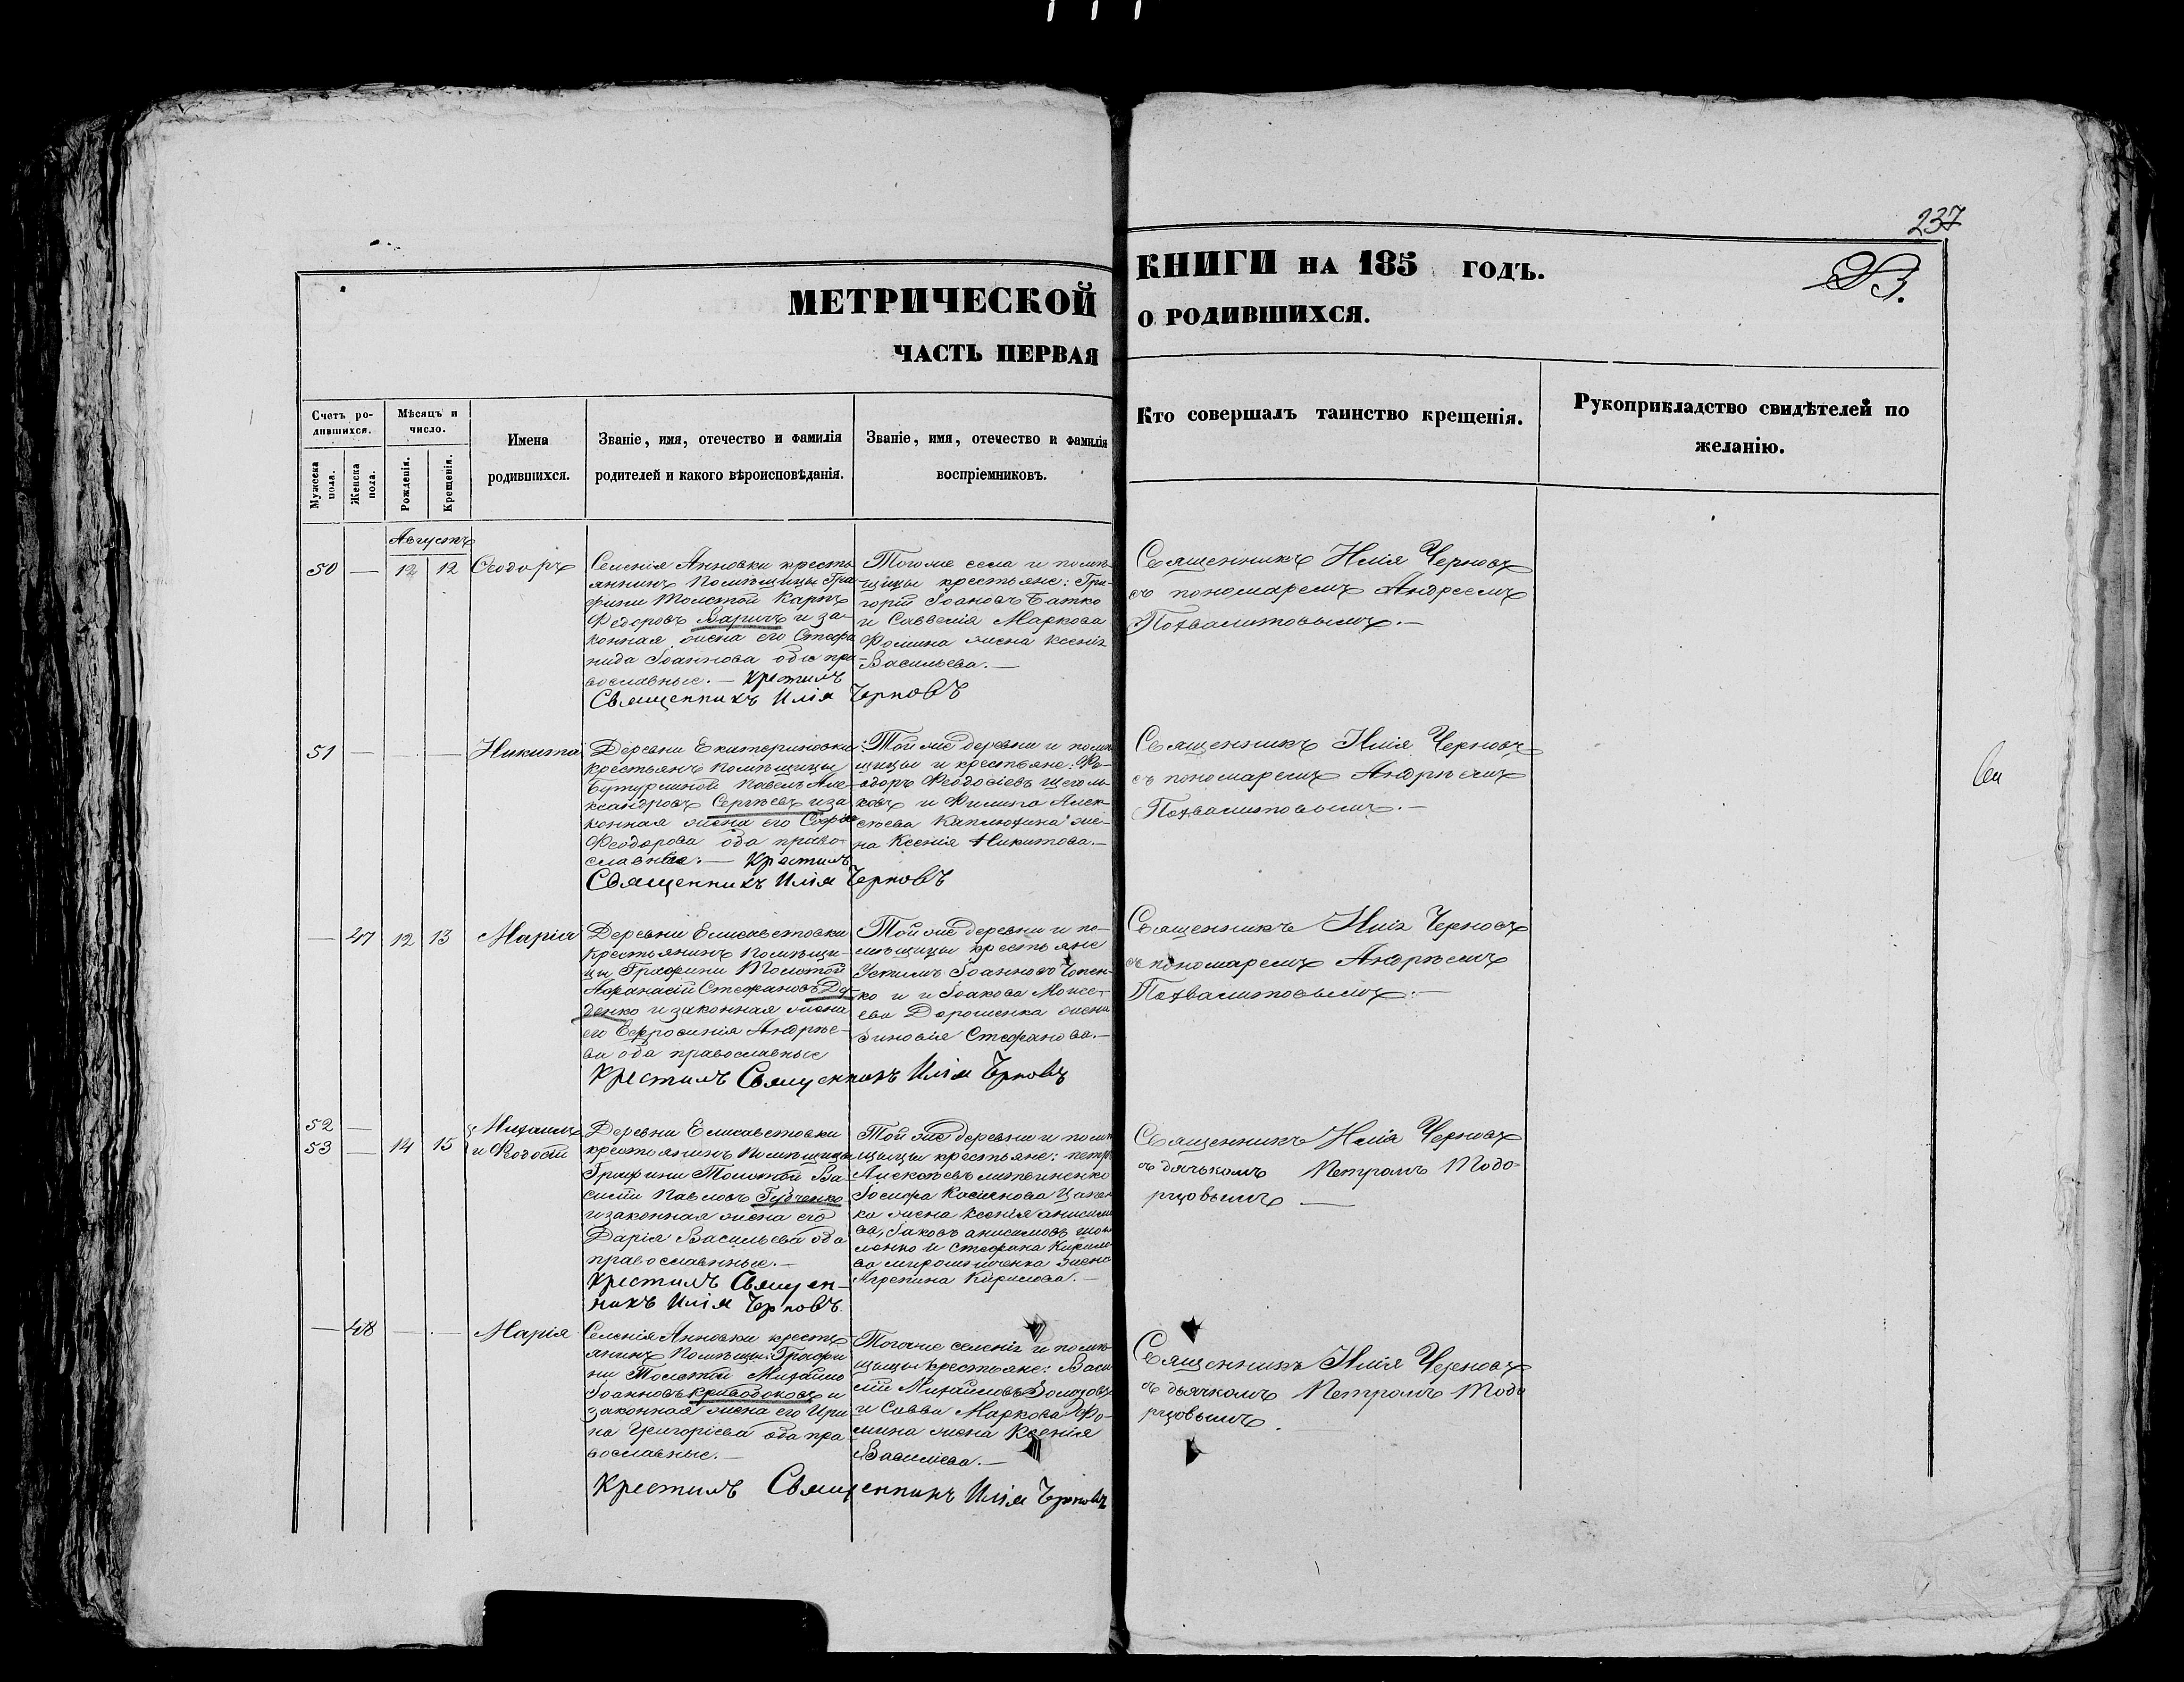 237
МЕТРИЧЕСКОЙ
КНИГИ НА 185 ГОДЪ.
ЧАСТЬ ПЕРВАЯ
О РОДИВШИХСЯ.
Счетъ ро-
дившихся.
Мужеска
пола.
Женска
пола.
Мѣсяцъ и
число.
Рожденія.
Крещенія.
Имена
родившихся.
Званіе, имя, отечество и фамилія
родителей и какого вѣроисповѣданія.
Званіе, имя, отечество и фамилія
воспріемниковъ.
Кто совершалъ таинство крещенія.
Рукоприкладство свидѣтелей по
желанію.
Августъ
50 — 12 12 Ѳеодоръ
Селенія Анновки кресть
янинъ Помѣщицы Гра
фини Толстой Карпъ
Федоровъ и за-
конная жена его Стефа
нида Іоаннова оба пра
вославные. — Крестилъ
Священникъ Илія Черновъ
Тогоже села и помѣ-
щицы крестьяне: Гри-
горій Іоановъ Батко
и Савветія Маркова
Фомина жена Ксенія
Васильева. —
Священникъ Илія Черновъ
съ пономаремъ Андреемъ
Похвалитовымъ. —
51 — — — Никита
Деревни Екатериновки
крестьянъ Помѣщицы
Бутурлиной Павелъ Але
ксандровъ Сергѣевъ и за
конная жена его Софія
Феодорова оба право-
славные. — Крестилъ
Священникъ Илія Черновъ
Той же деревни и помѣ
щицы и крестьяне: Фе-
одоръ Феодосіевъ Щеголь
ковъ и Филипа Алек-
сѣева Каплюхина же-
на Ксенія Никитова. —
Священникъ Илія Черновъ
съ пономаремъ Андрѣемъ
Похвалитовымъ. —
— 47 12 13 Марія
Деревни Елисаветовки
крестьянинъ Помѣщи-
цы Графини Толстой
Афанасій Стефановъ Де-
денко и законная жена
его Ефросинія Андрѣе-
ва оба православные
Крестилъ Священникъ Илія Черновъ
Той же деревни и по-
мѣщицы крестьяне
Устимъ Іоанновъ
ко и и Іоакова Моисе-
ева Дорошенка жена
Зиновія Стефанова. —
Священникъ Илія Черновъ
съ пономаремъ Андрѣемъ
Похвалитовымъ. —
52 —
53 — 14 15 Михаилъ
и Федосій
Деревни Елисаветовки
крестьянинъ Помѣщицы
Графини Толстой Ва
силій Павловъ Губченко
и законная жена его
Дарія Васильева оба
православные. —
Крестилъ Священ-
никъ Илія Черновъ
Той же деревни и помѣ
щицы крестьяне: Петръ
Алексѣевъ Литвиненко
Іосифа Касіянова
ка жена Ксенія Анисимо
ва, Іаковъ Анисимовъ
и Стефана Кирило
ва Мирошниченка жена
Агрепина Кирилова. —
Священникъ Илія Черновъ
съ дячькомъ Петромъ Тодо-
рцовымъ —
— 48 — — Марія
Селенія Анновки кресть
янинъ Помѣщицы Графи
ни Толстой Михаилъ
Іоанновъ и
законная жена его Ири
на Григоріева оба пра
вославные. —
Крестилъ Священникъ Илія Черновъ
Тогоже селенія и помѣ
щицы крестьяне: Васи
лій Михайловъ
и Савви Маркова Фо-
мина жена Ксенія
Василіева. —
Священникъ Илія Черновъ
съ дьячкомъ Петромъ Тодо
рцовымъ.